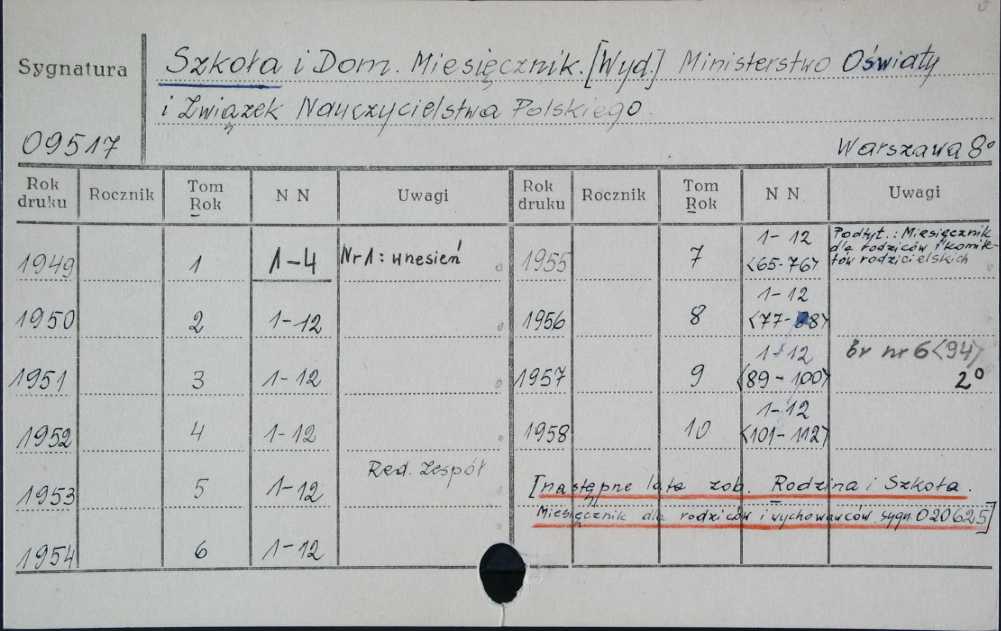 Sygnatura
09517
Szkoła i Dom. Miesięcznik. [Wyd.] Ministerstwo Oświaty
i Związek Nauczycielstwa Polskiego.
Warszawa 8°
Rok druku Rocznik Tom Rok N N Uwagi Rok druku Rocznik Tom Rok N N Uwagi
1949 1 1-4 Nr 1: wnesień
1950 2 1-12
1951 3 1-12
1952 4 1-12
Red. Zespół
1953 5 1-12
1954 6 1-12
1955 7 1-12 <65-76>
Podtyt.: Miesięcznik
dla rodziców i komite-
tów rodzicielskich
1956 8 1-12 <77-88>
1957 9 1-12 <89-100> br nr 6<94>
2°
1958 10 1-12 <101-112>
[następne lata zob. Rodzina i Szkoła.
Miesięcznik dla rodziców i wychowawców sygn. 020625]